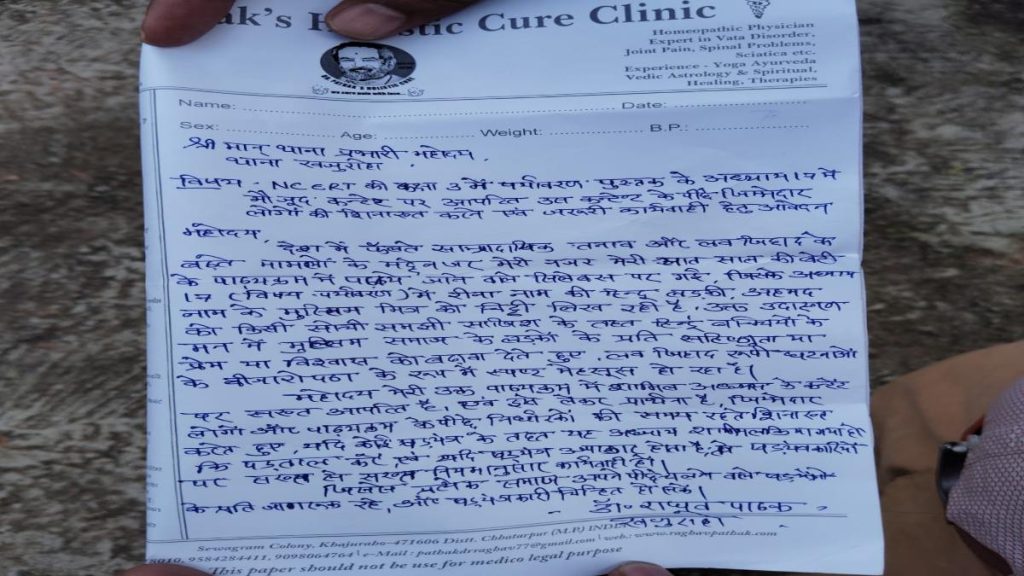 ak's H stic Cure Clinic
Homeopathic Physician
Expert in Vata Disorder,
Joint Pain, Spinal Problems,
Sciatica etc.
Experience - Yoga Ayurveda
Vedic Astrology & Spiritual,
Healing, Therapies
Name: Date:
Sex: Age: Weight: B.P.:
श्री मान थाना प्रभारी महोदय,
थाना खजुराहो
विषय, NCERT की कक्षा 3 में पर्यावरण पुस्तक के अध्याय 17 में
मौजूद कन्टेन्ट पर आपत्ति उस कन्टेन्ट के पीछे जिम्मेदार
लोगों की शिनाख्त करने एवं जरूरी कार्यवाही हेतु आवेदन
महोदय,
देश में फैलते साम्प्रदायिक तनाव और लव जिहाद के
बढ़ते मामलों के मद्देनजर मेरी नजर मेरी सात साल की बेटी
के पाठ्यक्रम में पढ़ाये जाने वाले सिलेबस पर गई, जिसके अध्याय
17 (विषय पर्यावरण) में रीना नाम की हिन्दू लड़की, अहमद
नाम के मुस्लिम मित्र को चिट्ठी लिख रही है, उक्त उदाहरण
को किसी सोची समझी साजिश के तहत हिन्दू बच्चियों के
मन में मुस्लिम समाज के लड़कों के प्रति सहिष्णुता या
प्रेम या विश्वास को बढ़ावा देते हुए, लव जिहाद रूपी घटनाओं
के बीजारोपण के रूप में स्पष्ट महसूस हो रहा है।
महोदय मेरी उक्त पाठ्यक्रम में शामिल अध्याय के कन्टेंट
पर सख्त आपत्ति है, एवं इसे लेकर प्रार्थना है, जिम्मेदार
लोगों और पाठ्यक्रम के पीछे की समय रहते शिनाख्त
करते हुए, यदि कोई षड्यंत्र के तहत यह अध्याय शामिल किया गया हो
कि पड़ताल करें, एवं यदि षड्यंत्र उजागर होता है, तो षड्यंत्रकारियों
पर सख्त से सख्त नियमानुसार कार्यवाही हो।
जिससे प्रत्येक समाज अपने पीछे चलने वाले षड्यंत्रों
के प्रति जागरूक रहे, और षड्यंत्रकारी चिन्हित हो सकें।
डॉ॰ राघव पाठक
खजुराहो
Sewagram Colony, Khajuraho-471606 Distt. Chhatarpur (M.P.) INDIA
9584284411, 9098064764 \ e-Mail : pathakdrraghav77@gmail.com \ web: www.raghavpathak.com
This paper should not be use for medico legal purpose